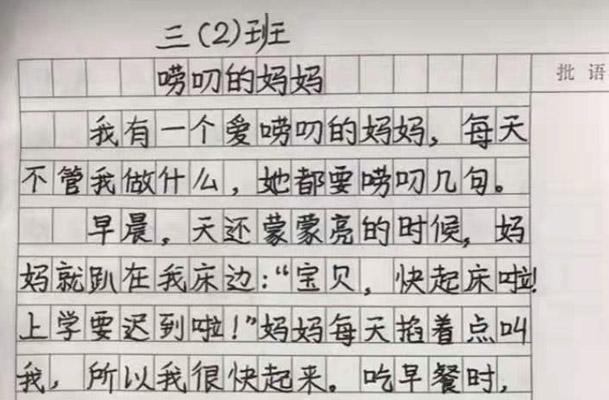 三(2)班
唠叨的妈妈
批语
我有一个爱唠叨的妈妈，每天
不管我做什么，她都要唠叨几句。
早晨。天还蒙蒙亮的时候，妈
妈就趴在我床边:“宝贝，快起床啦!
上学要迟到啦!”妈妈每天掐着点叫
我，所以我很快起来。吃早餐时，